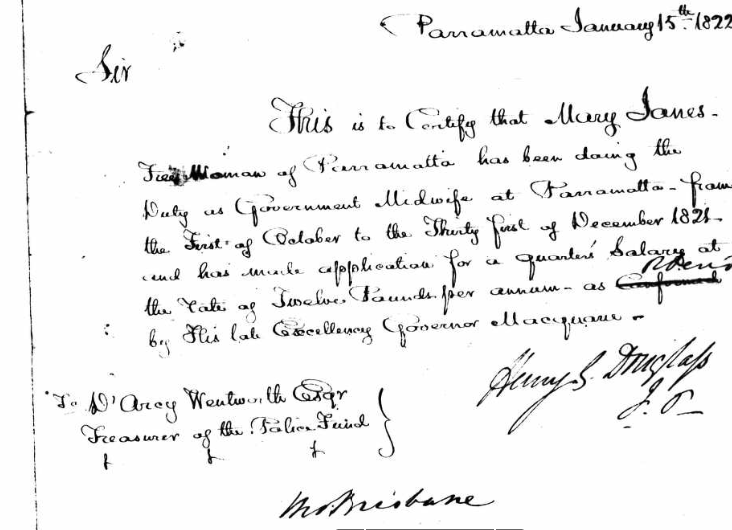 Parramatta January 15th. 1822
Sir
This is to Certify that Mary Janes -
Free Woman of Parramatta has been doing the
Duty as Government Midwife at Parramatta - from
the First of October to the Thirty first of December 1821 -
and has made application for a quarters Salary at
the Rate of Twelve Pounds per annum - as
by His late Excellency Governor Macquarie -
Henry G. Douglass
J. P.
To D'Arcy Wentworth Esqr
Treasurer of the Police Fund
Tho Brisbane